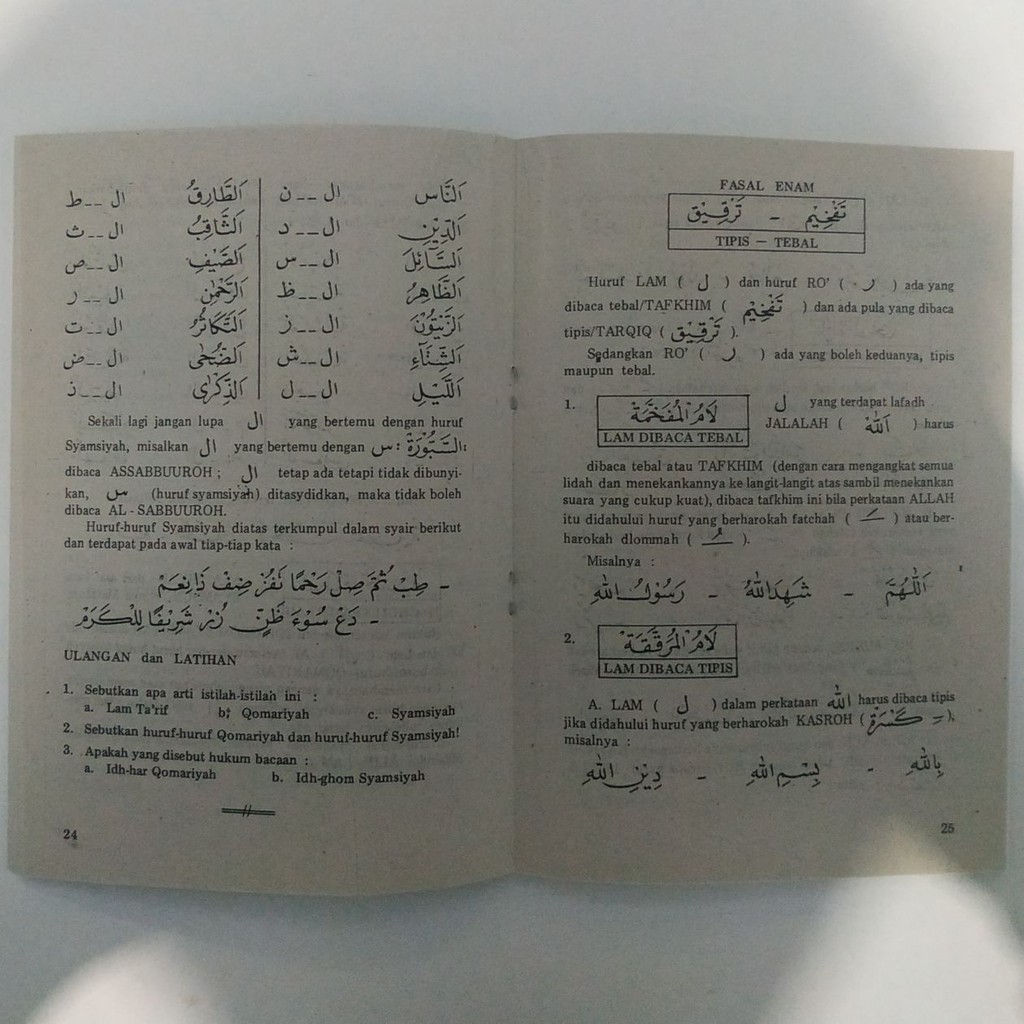 اَلنَّاس ال ــ ن اَلطَّارِقُ ال ــ ط
اَلدِّيْنِ ال ــ د اَلثَّاقِبُ ال ــ ث
اَلسَّآئِلَ ال ــ س اَلصَّيْفِ ال ــ ص
اَلظَّاهِرُ ال ــ ظ اَلرَّحْمٰنِ ال ــ ر
اَلزَّيْتُوْنَ ال ــ ز اَلتَّكَاثُرُ ال ــ ت
اَلشِّتَآءِ ال ــ ش اَلضُّحٰى ال ــ ض
اَللَّيْلِ ال ــ ل اَلذِّكْرٰى ال ــ ذ
Sekali lagi jangan lupa ال yang bertemu dengan huruf
Syamsiyah, misalkan ال yang bertemu dengan س : اَلسَّبُّوْرَةُ
dibaca ASSABBUUROH ; ال tetap ada tetapi tidak dibunyi-
kan, س (huruf syamsiyah) ditasydidkan, maka tidak boleh
dibaca AL - SABBUUROH.
Huruf-huruf Syamsiyah diatas terkumpul dalam syair berikut
dan terdapat pada awal tiap-tiap kata :
- طِبْ ثُمَّ صِلْ رَحْمًا تَفُزْ ضِفْ ذَا نِعَمْ
- دَعْ سُوْءَ ظَنٍّ زُرْ شَرِيْفًا لِلْكَرَمْ
ULANGAN dan LATIHAN
1. Sebutkan apa arti istilah-istilah ini :
a. Lam Ta'rif b. Qomariyah c. Syamsiyah
2. Sebutkan huruf-huruf Qomariyah dan huruf-huruf Syamsiyah!
3. Apakah yang disebut hukum bacaan :
a. Idh-har Qomariyah b. Idh-ghom Syamsiyah
24
FASAL ENAM
تَفْخِيْم - تَرْقِيْق
TIPIS — TEBAL
Huruf LAM ( ل ) dan huruf RO' ( ر ) ada yang
dibaca tebal/TAFKHIM ( تَفْخِيْم ) dan ada pula yang dibaca
tipis/TARQIQ ( تَرْقِيْق ).
Sedangkan RO' ( ر ) ada yang boleh keduanya, tipis
maupun tebal.
1. لَامُ الْمُفَخَّمَةْ
LAM DIBACA TEBAL
ل yang terdapat lafadh
JALALAH ( اَللّٰهُ ) harus
dibaca tebal atau TAFKHIM (dengan cara mengangkat semua
lidah dan menekankannya ke langit-langit atas sambil menekankan
suara yang cukup kuat), dibaca tafkhim ini bila perkataan ALLAH
itu didahului huruf yang berharokah fatchah ( ـَ ) atau ber-
harokah dlommah ( ـُ ).
Misalnya :
اَللّٰهُمَّ - شَهِدَ اللّٰهُ - رَسُوْلُ اللّٰهِ
2. لَامُ الْمُرَقَّقَةْ
LAM DIBACA TIPIS
A. LAM ( ل ) dalam perkataan الله harus dibaca tipis
jika didahului huruf yang berharokah KASROH ( كَسْرَةْ ـِ ),
misalnya :
بِاللّٰهِ - بِسْمِ اللّٰهِ - دِيْنِ اللّٰهِ
25